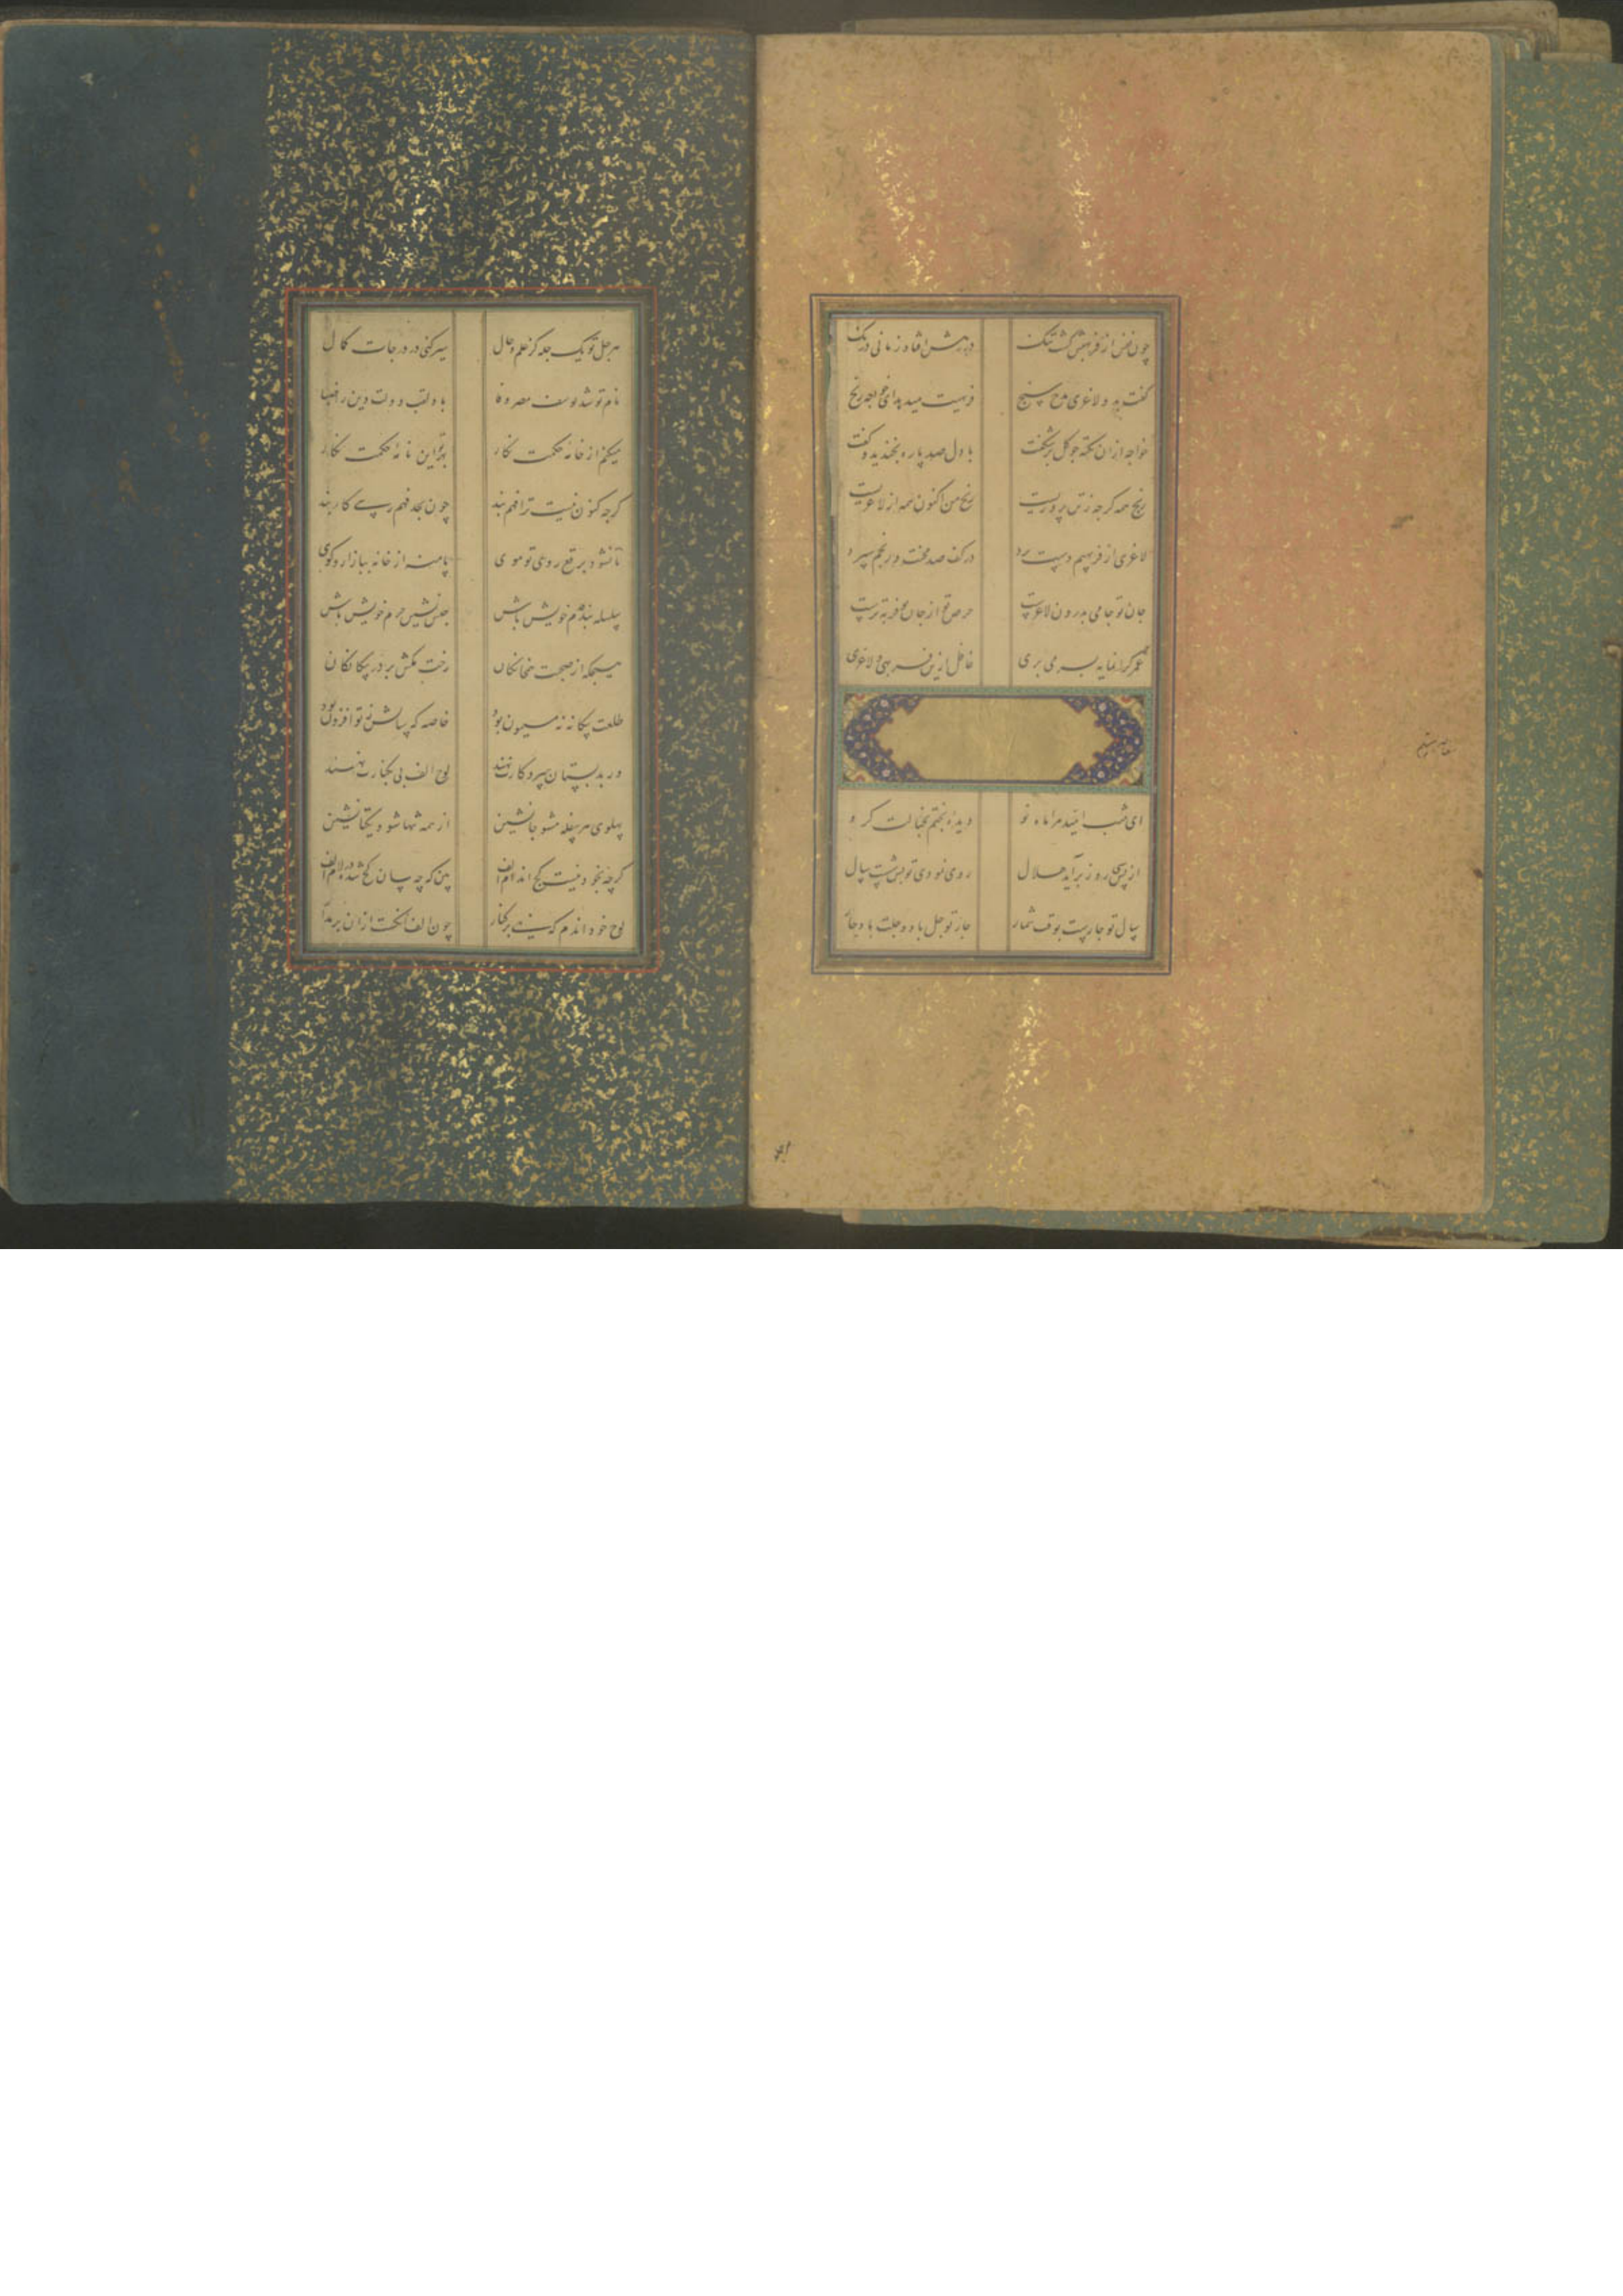 چون نفس از فربهیش گشت تنگ در رهش افتاد زمانی درنگ
گفت بدو لاغری مدح سنج فربهیت میدهد ای خواجه رنج
خواجه ازان نکته چو گل برشکفت با دل صد پاره بخندید و گفت
رنج همه گرچه ز تن پروریست رنج من اکنون همه از لاغریست
لاغری از فربهیم دست برد در کف صد محنت و رنجم سپرد
جان تو جامی بدرون لاغرست حرص تو از جان تو فربه ترست
عمر گرانمایه بسر می بری غافل ازین فربهی و لاغری
ای شب امید مرا ماه نو دیده بختم بخیالت گرو
از پس سی روز برآید هلال روی نمودی تو پس از شصت سال
سال تو چارست بوقت شمار چار تو چل باد و چلت باد چار
هر چل تو یک چله کز علم و حال سیر کنی در درجات کمال
نام تو شد یوسف مصر وفا با دلقب دولت دین را ضیا
میکنم از خامه حکمت نگار بهر تو این نامه حکمت نگار
گرچه کنون نیست ترا فهم پند چون بحد فهم رسی کار بند
تا نشود برقع روی تو موی پا منه از خانه ببازار و کوی
سلسله بند قدم خویش باش حجره نشین حرم خویش باش
هیچگه از صحبت همخانگان رخت مکش بر در بیگانگان
طلعت بیگانه نه میمون بود خاصه که سالش ز تو افزون بود
ور بدبستان سر و کارت نهند لوح الف بی بکنارت نهند
پهلوی هر سفله مشو جانشین از همه تنها شو و یکتا نشین
گرچه بخود نیست کج اندام الف بین که چه سان کج شده در لام الف
لوح خود اندم که نهی برکنار چون الف انگشت ازان برمدار